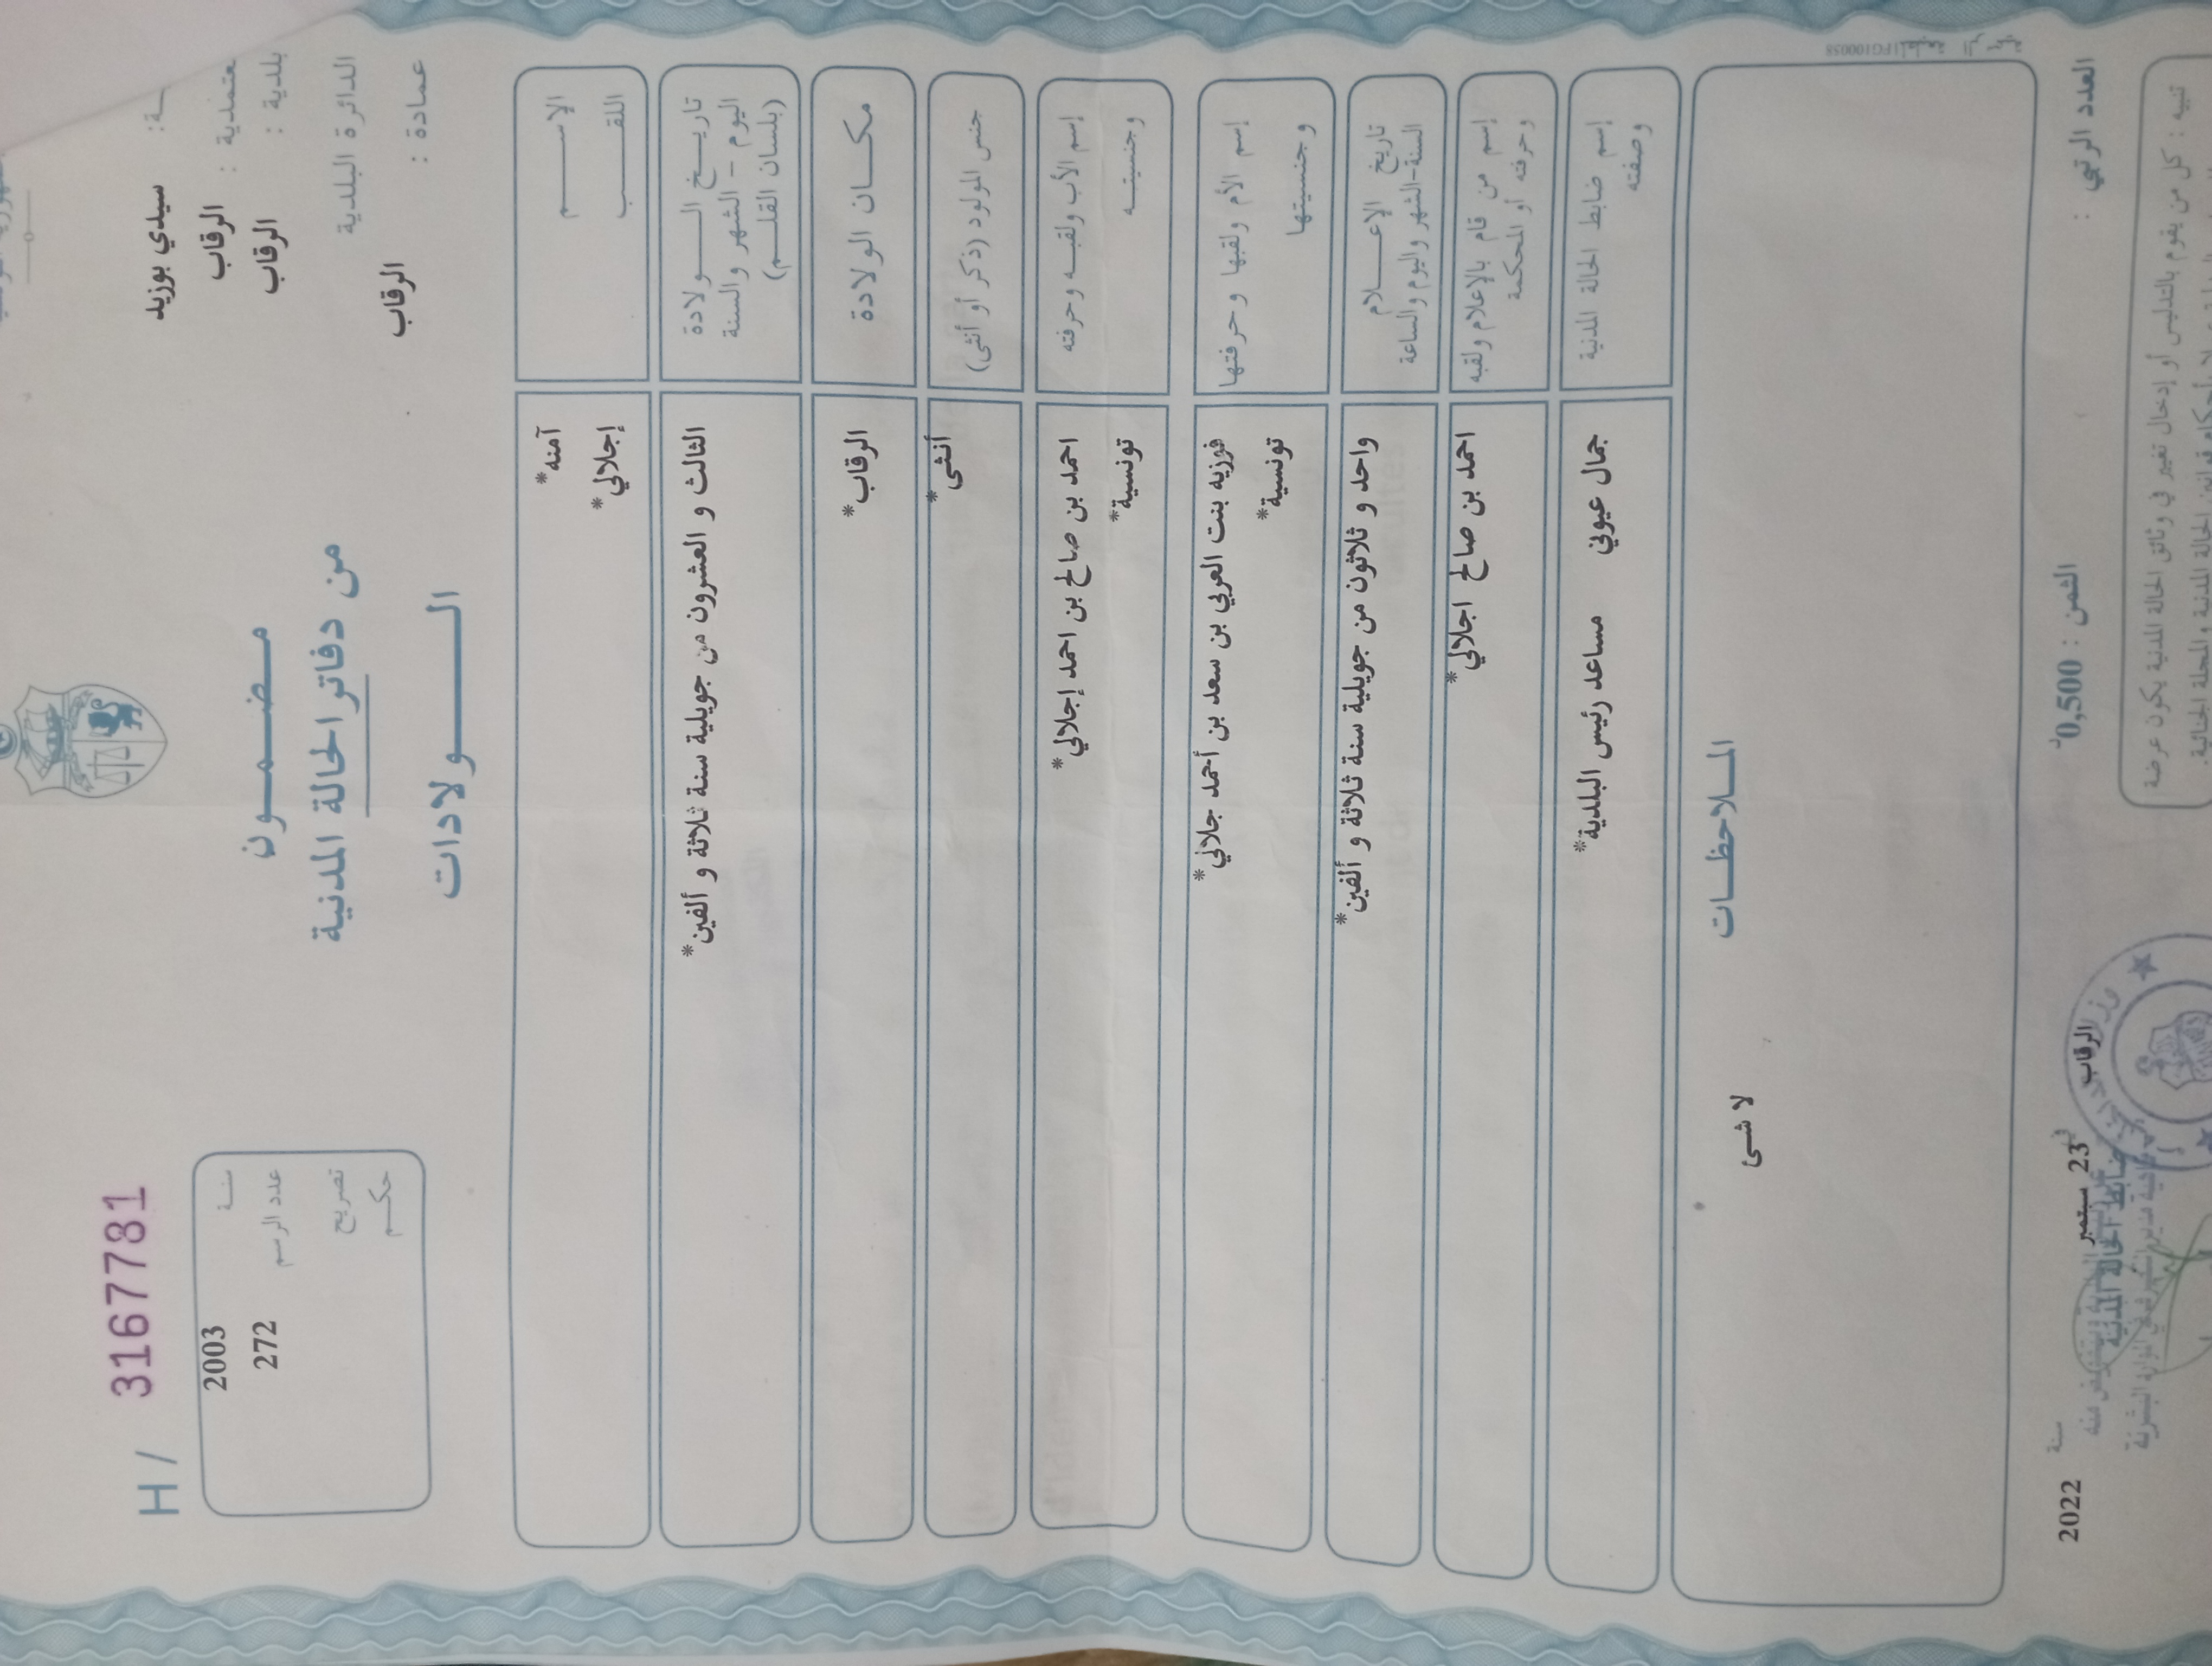 H / 3167781
سيدي بوزيد
معتمدية : الرقاب
بلدية : الرقاب
الدائرة البلدية
عمادة : الرقاب
سنة 2003
عدد الرسم 272
تصريح
حكم
مضمون
من دفاتر الحالة المدنية
الولادات
الاسم آمنه*
اللقب إجلالي*
تاريخ الولادة
اليوم - الشهر والسنة
(بلسان القلم)
الثالث و العشرون من جويلية سنة ثلاثة و ألفين*
مكان الولادة الرقاب*
جنس المولود (ذكر أو أنثى) أنثى*
إسم الأب ولقبه وحرفته
وجنسيته
احمد بن صالح بن احمد إجلالي*
تونسية*
إسم الأم ولقبها وحرفتها
وجنسيتها
فوزيه بنت العربي بن سعد بن أحمد جلالي*
تونسية*
تاريخ الإعلام
السنة-الشهر واليوم والساعة
واحد و ثلاثون من جويلية سنة ثلاثة و ألفين*
إسم من قام بالإعلام ولقبه
وحرفته أو المحكمة
احمد بن صالح اجلالي*
إسم ضابط الحالة المدنية
وصفته
جمال عيوني مساعد رئيس البلدية*
الملاحظات
لا شئ
العدد الرتبي :
الثمن : 0,500د
الرقاب في 23 سبتمبر سنة 2022
ضابط الحالة المدنية
تنبيه : كل من يقوم بالتدليس أو إدخال تغيير في وثائق الحالة المدنية يكون عرضة